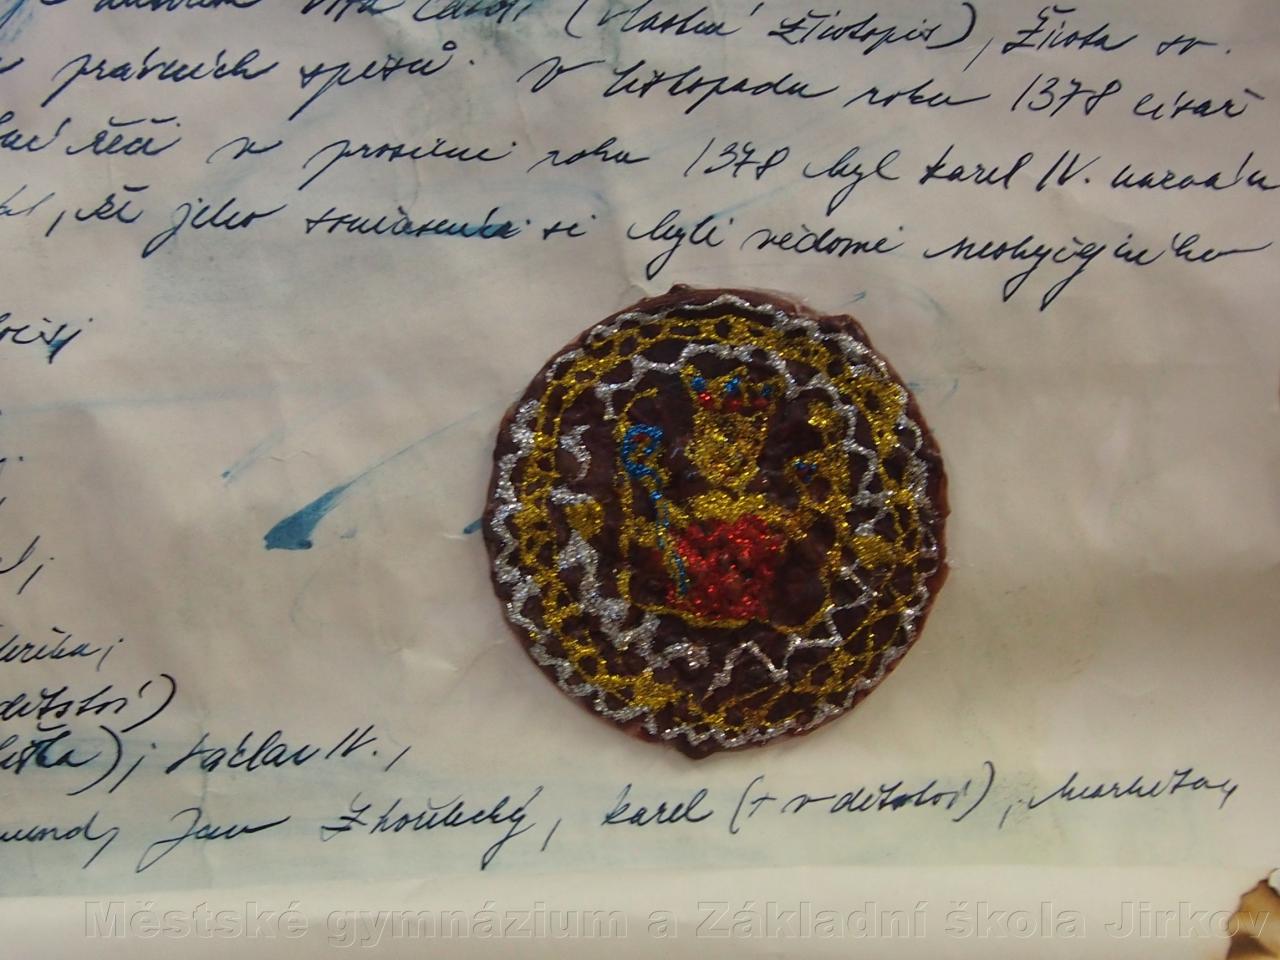 autorem Vita Caroli (vlastní životopis), Života sv.
právních spisů. V listopadu roku 1378 císař
řeči v prosinci roku 1378 byl Karel IV. nazván
, že jeho současníci si byli vědomi neobyčejného
dětství)
); Václav IV.,
Jan Zhořelecký, Karel (+ v dětství), Markéta,
Městské gymnázium a Základní škola Jirkov